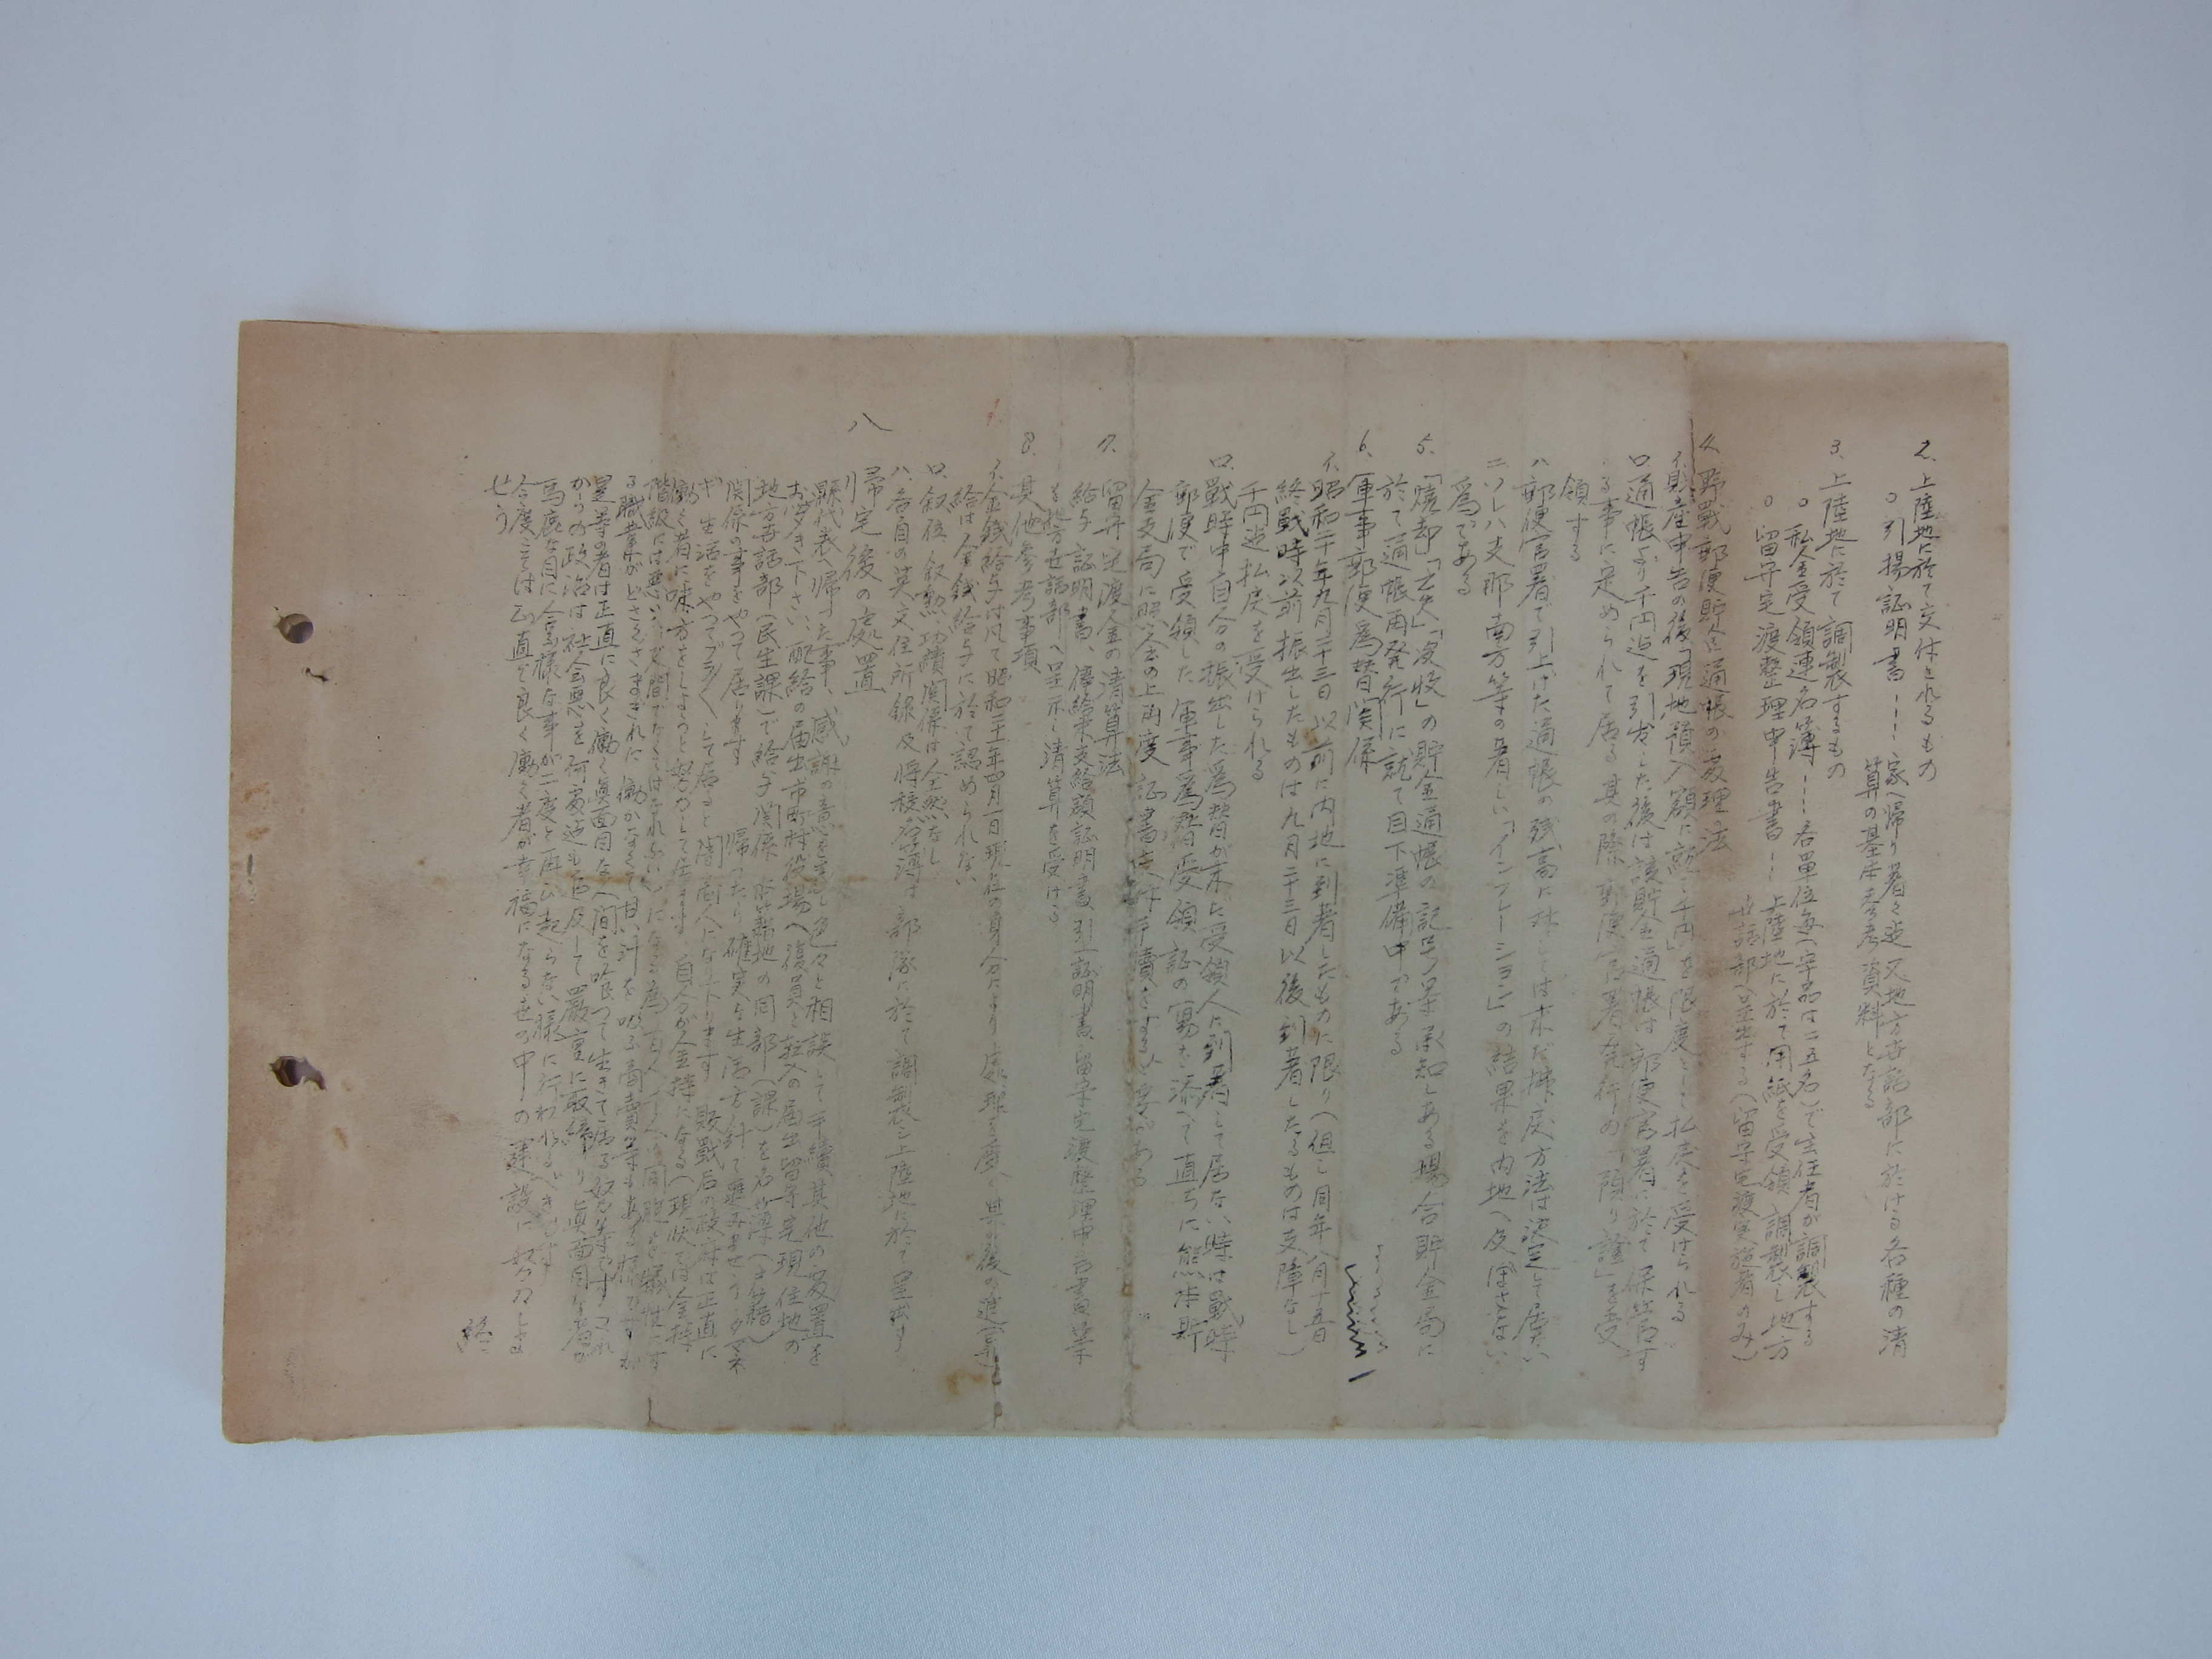 2. 上陸地に於て交付されるもの
○引揚証明書 … 家へ帰り着く迄又地方世話部に於ける各種の清
算の基本参考資料となる
3. 上陸地に於て調製するもの
○私金受領連名簿 … 各単位毎(字品は二五名)で主任者が調製する
○留守宅渡整理申告書 … 上陸地に於て用紙を受領調製し地方
世話部へ呈出する(留守宅渡実施者のみ)
4. 野戦郵便貯金通帳の処理法
イ.財産申告の後「現地預入額に就き千円」を限度として払戻を受けられる
ロ.通帳より千円迄を引出した後は該貯金通帳は郵便官署に於て保管す
る事に定められて居る其の際郵便官署発行の「預り證」を受
領する
ハ.郵便官署で引上げた通帳の残高に対しては未だ拂戻方法は決定して居ない
ニ.ソレハ支那南方等の著しい「インフレーション」の結果を内地へ及ぼさない
為である
5. 「焼却」「亡失」「没收」の貯金通帳の記号番号承知しある場合貯金局に
於て通帳再発行に就て目下準備中である
6. 軍事郵便為替関係
イ.昭和二十年九月二十三日以前に内地に到着したものに限り(但し同年八月十五日
終戦時以前振出したものは九月二十三日以後到着したるものは支障なし)
千円迄払戻を受けられる
ロ.戦時中自分の振出した為替が未だ受領人に到着して居ない時は戦時
郵便で受領した軍事為替受領証の寫を添へて直ちに熊本貯
金支局に照会の上再度証書 手續をするを要がある
7. 留守宅渡金の清算法
給与証明書、俸給未支給額証明書、引 証明書、留守宅渡整理申告書等
を地方世話部へ呈示し清算を受ける
8. 其他参考事項
イ.金銭給与は凡て昭和二十一年四月一日現在の身分により処理 其の後の進
給は金銭給与に於て認められない
ロ.叙位、叙勲、功績関係は全然なし
ハ.各自の英文住所録及将校 簿は部隊に於て調製し上陸地に於て呈出す
八 帰宅後の處置
親代表へ帰つた事、感謝の意を表し色々と相談して手續其他の処置を
お聞き下さい、配給の届出市町村役場へ復員と転入の届出留守宅現住地の
地方世話部(民生課)で給与関係 本籍地の同部(課)を名簿(戸籍)
関係の事をやつて居ります 帰つたら確実な生活方針で進みませう
生活をやつてブラブラして居ると闇商人になり下ります 敗戦后の政府は正直に
働く者に味方をしようと努力して居ます 自分が金持になる(現状では金持
階級には悪い人間でなくてはなれない)になる為 百人 人へ同胞を犠牲にす
る職業がどさくさまぎれに働かなくて甘い汁を吸ふ商賣等もある
是等の者は正直に良く働く真面目な人間を喰つて生きて居る奴等です これ
からの政治は社会悪を何處迄も追及して厳重に取締り真面目な者が
馬鹿な目に会ふ様な事が二度と再び起らない様に行われるべきです
今度こそは正直で良く働く者が幸福になる世の中の建設に努力しま
せう
終